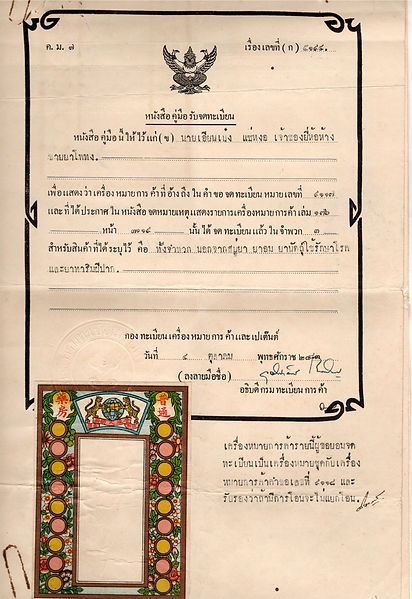 ค. ม. ๗
เรื่องเลขที่ (ก)
หนังสือคู่มือรับจดทะเบียน
หนังสือ คู่มือ นี้ ให้ ไว้ แก่ (ข) นายเอียนเป๋ง แซ่หงอ เจ้าของยี่ห้อห้าง
ขายยาโพทง
เพื่อแสดง ว่า เครื่อง หมาย การ ค้า ที่ อ้าง ถึง ใน คำ ขอ จด ทะเบียน หมาย เลขที่ ๙๑๑๗
และ ที่ ได้ ประกาศ ใน หนังสือ จดหมายเหตุ แสดงรายการเครื่องหมายการค้า เล่ม
หน้า นั้น ได้ จด ทะเบียน แล้ว ใน จำพวก ๓
สำหรับสินค้าที่ได้ระบุไว้ คือ ทั้งจำพวก นอกจากสบู่ยา ยาอม ยานัตถุ์ใช้รักษาโรค
และยาทาริมฝีปาก
กอง ทะเบียน เครื่อง หมาย การ ค้า และ เปเต๊นต์
วันที่ ๔ ตุลาคม พุทธศักราช ๒๔๘๓
(ลงลายมือชื่อ)
อธิบดี กรม ทะเบียน การ ค้า
普通
藥房
เครื่องหมายการค้ารายนี้ผู้ขอยอมจด
ทะเบียนเป็นเครื่องหมายชุดกับเครื่อง
หมายการค้าคำขอเลขที่ ๙๑๑๘ และ
รับรองว่าถ้ามีการโอนจะไม่แยกโอน